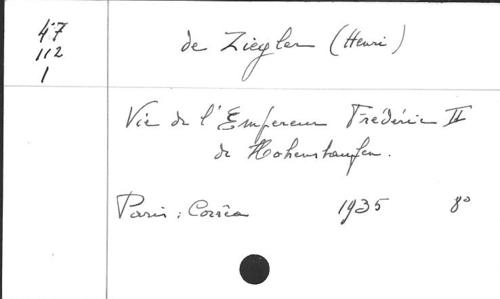 47
112
1
de Ziegler (Henri)
Vie de l'Empereur Frédéric II
de Hohenstaufen.
Paris : Corrêa 1935 8°